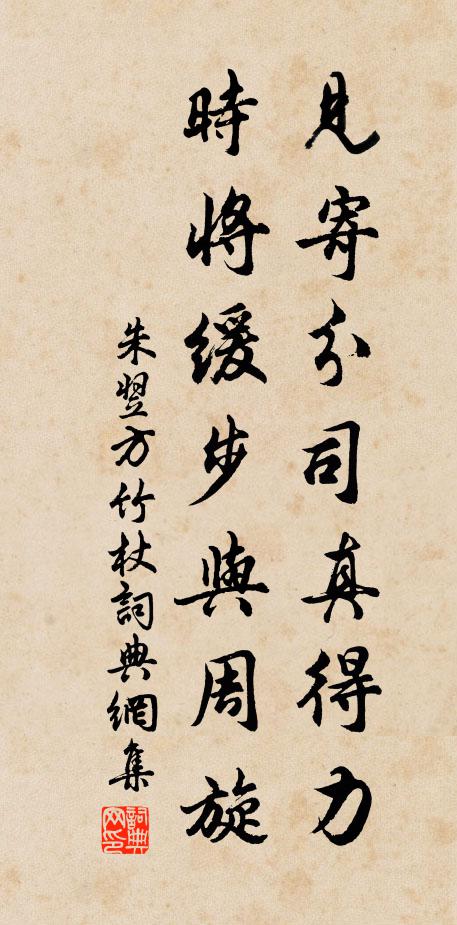 見寄分司真得力
時將緩步與周旋
朱翌方竹杖詞典網集
詞典网印